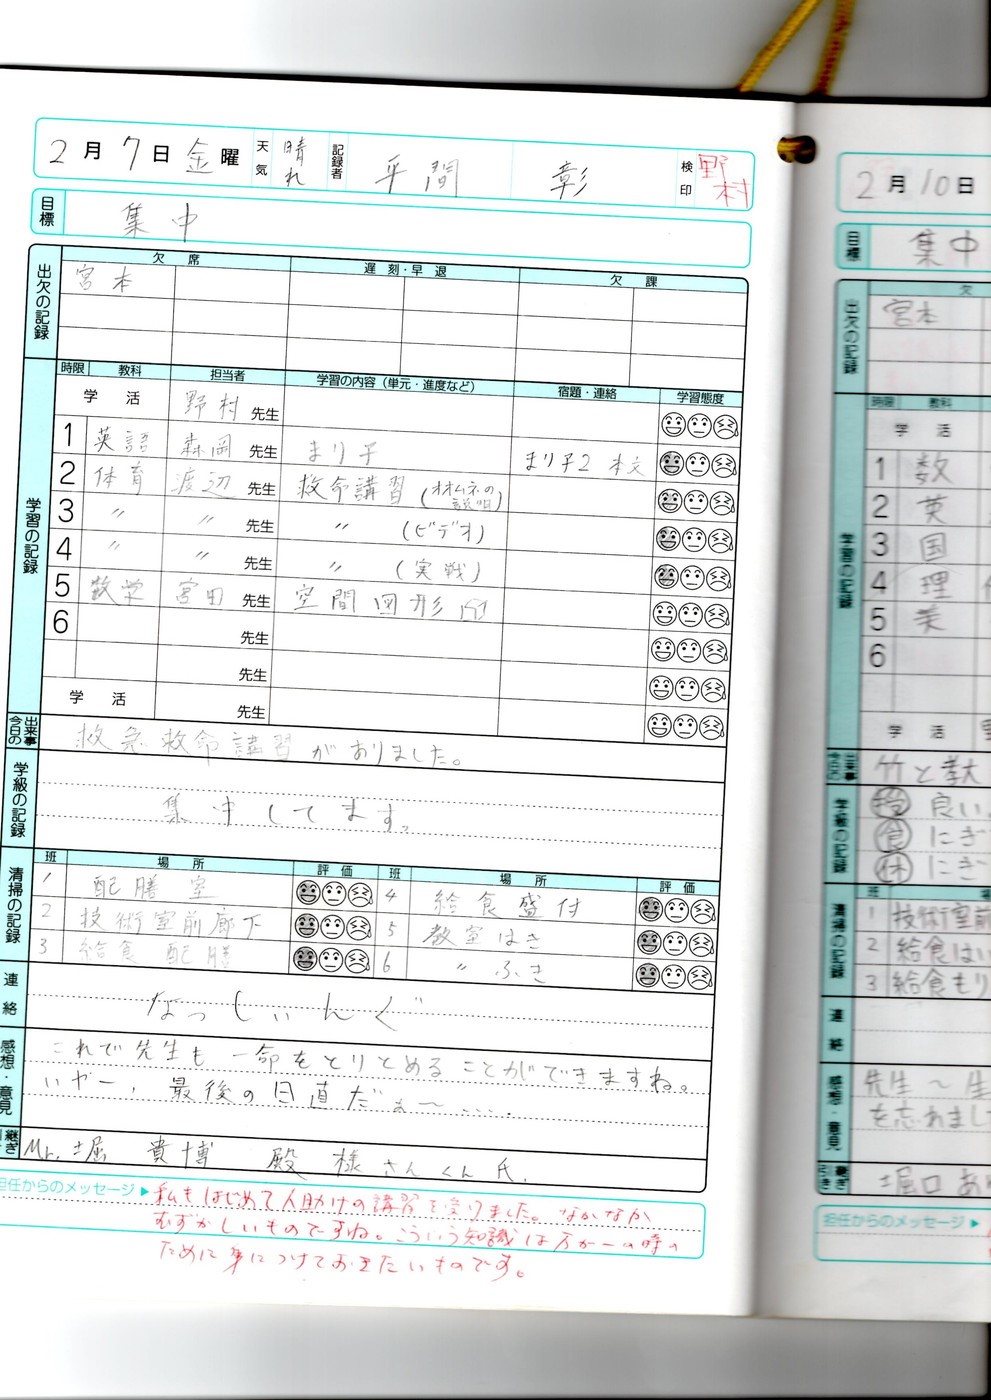 2月7日 金曜 天気 晴れ 記録者 平間 彰 検印 野村
目標 集中
出欠の記録 欠席 遅刻・早退 欠課
宮本
学習の記録
時限 教科 担当者 学習の内容(単元・進度など) 宿題・連絡 学習態度
学活 野村 先生
1 英語 森岡 先生 まり子 まり子2 本文
2 体育 渡辺 先生 救命講習 (オオムネの説明)
3 〃 〃 先生 〃 (ビデオ)
4 〃 〃 先生 〃 (実戦)
5 数学 宮田 先生 空間図形
6 先生
先生
学活 先生
今日の出来事 救急救命講習がありました。
学級の記録 集中してます。
清掃の記録 班 場所 評価 班 場所 評価
1 配膳室 4 給食盛付
2 技術室前廊下 5 教室はき
3 給食配膳 6 〃 ふき
連絡 なっしぃんぐ
感想・意見 これで先生も一命をとりとめることができますね。
いやー、最後の日直だぁ〜.....
引き継ぎ Mr. 堀 貴博 殿 様 さん くん 氏.
担任からのメッセージ▶ 私もはじめて人助けの講習を受けました。なかなか
むずかしいものですね。こういう知識は万が一の時の
ために身につけておきたいものです。
2月10日
目標 集中
出欠の記録 欠
宮本
学習の記録
時限 教科
学活
1 数
2 英
3 国
4 理
5 英
6
学活
今日の出来事 竹と
学級の記録 良い
食 にぎ
休 にぎ
清掃の記録 班
1 技術室前
2 給食はい
3 給食もり
連絡
感想・意見 先生〜生
を忘れまし
引き継ぎ 堀口 あ
担任からのメッセージ▶